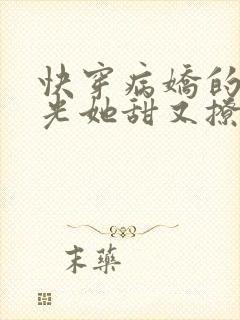 快穿病嬌的
光她甜又撩
末藥